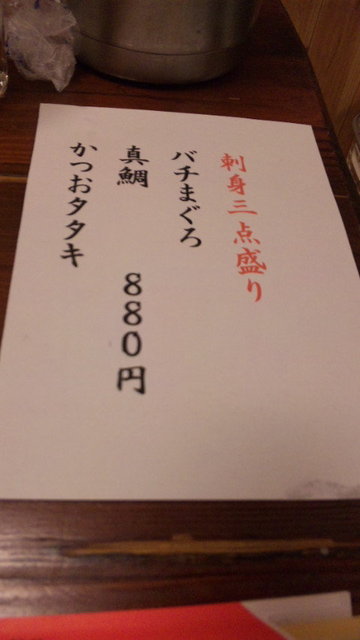 刺身三点盛り
バチまぐろ
真鯛 880円
かつおタタキ